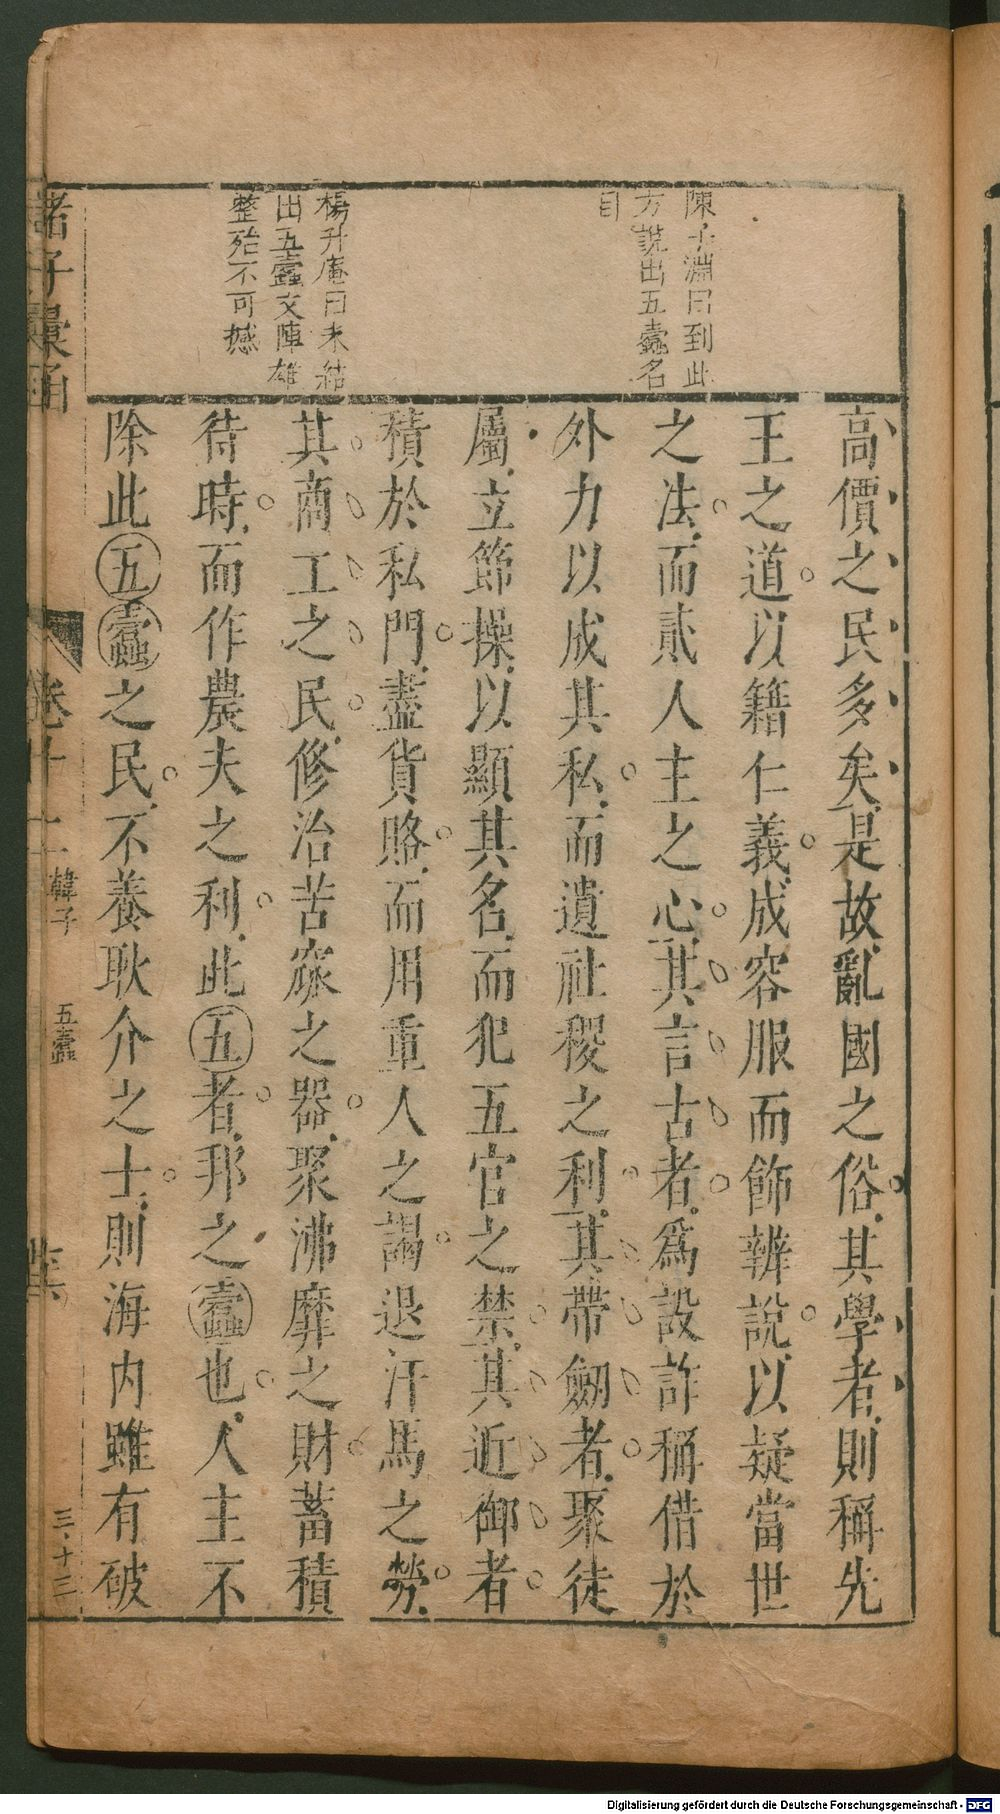 陳子淵曰到此
方說出五蠹名
目
楊升庵曰末結
出五蠹文陣雄
整殆不可撼
高價之民多矣是故亂國之俗其學者則稱先
王之道以籍仁義成容服而飾辨說以疑當世
之法而貳人主之心其言古者爲設詐稱借於
外力以成其私而遺社稷之利其帶劒者聚徒
屬立節操以顯其名而犯五官之禁其近御者
積於私門盡貨賂而用重人之謁退汗馬之勞
其商工之民修治苦窳之器聚沸靡之財蓄積
待時而作農夫之利此五者邦之蠹也人主不
除此五蠹之民不養耿介之士則海内雖有破
諸子彙函
卷十二 韓子 五蠹
三·十三
Digitalisierung gefördert durch die Deutsche Forschungsgemeinschaft - DFG